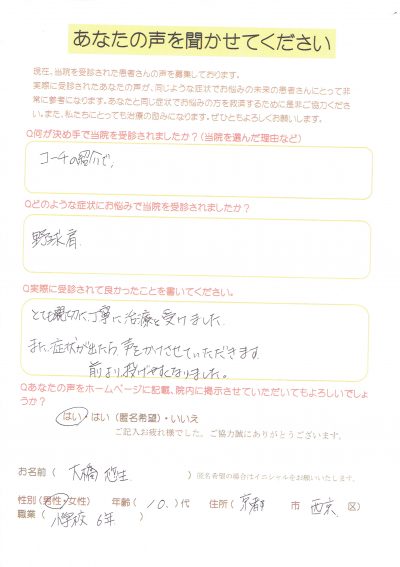 あなたの声を聞かせてください
現在、当院を受診された患者さんの声を募集しております。
実際に受診されたあなたの声が、同じような症状でお悩みの未来の患者さんにとって非
常に参考になります。あなたと同じ症状でお悩みの方を救済するために是非ご協力くださ
い。また、私たちにとっても治療の励みになります。ぜひともよろしくお願いします。
Q何が決め手で当院を受診されましたか?(当院を選んだ理由など)
コーチの紹介で、
Qどのような症状にお悩みで当院を受診されましたか?
野球肩
Q実際に受診されて良かったことを書いてください。
とても親切に丁寧に治療を受けました。
また、症状が出たら声をかけさせていただきます。
前より投げやすくなりました。
Qあなたの声をホームページに記載、院内に掲示させていただいてもよろしいでしょ
うか?
はい・はい(匿名希望)・いいえ
ご記入お疲れ様でした。ご協力誠にありがとうございます。
お名前( 大橋 悠生 )匿名希望の場合はイニシャルをお願いいたします。
性別(男性・女性) 年齢( 10 、)代 住所( 京都 市 西京 区)
職業( 小学校 6年 )